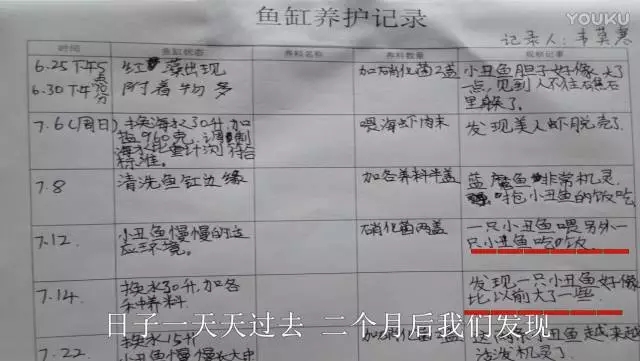 YOUKU
鱼缸养护记录
记录人:韦莫寒
时间 鱼缸状态 养料名称 养料数量 观察记事
6.25下午5点 红藻出现 加硝化菌2盖 小丑鱼胆子好像大了
6.30下午 附着物多 一点,见到人不往石
里躲了。
7.6(周日) 换海水30升,加 喂海虾肉末 发现美人虾脱壳了
盐960克,调制
海水比重计测符合
标准。
7.8 清洗鱼缸边缘 加各养料半盖 蓝魔鱼非常机灵
小丑鱼的饭吃
7.12. 小丑鱼慢慢的适 硝化菌两盖 一只小丑鱼喂另外一
应环境。 只小丑鱼吃饭
7.14. 换水30升,加各 发现一只小丑鱼好像
种料 比以前大了一些
日子一天天过去 二个月后我们发现
7.22 换水15升 小丑鱼越来越
小丑鱼慢慢长大